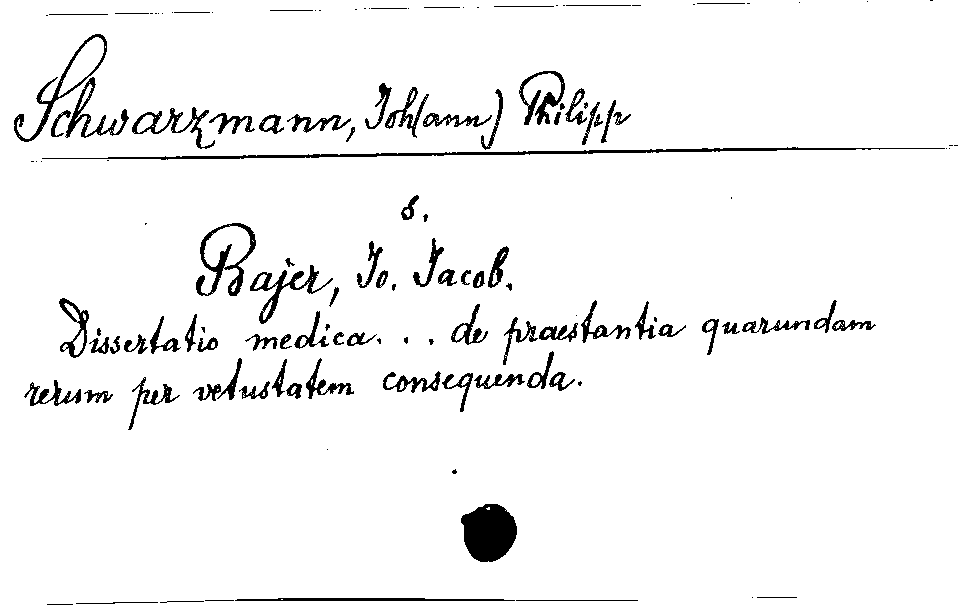 Schwarzmann, Joh(ann) Philipp
s.
Bajer, Jo. Jacob.
Dissertatio medica. . . de praestantia quarundam
rerum per vetustatem consequenda.